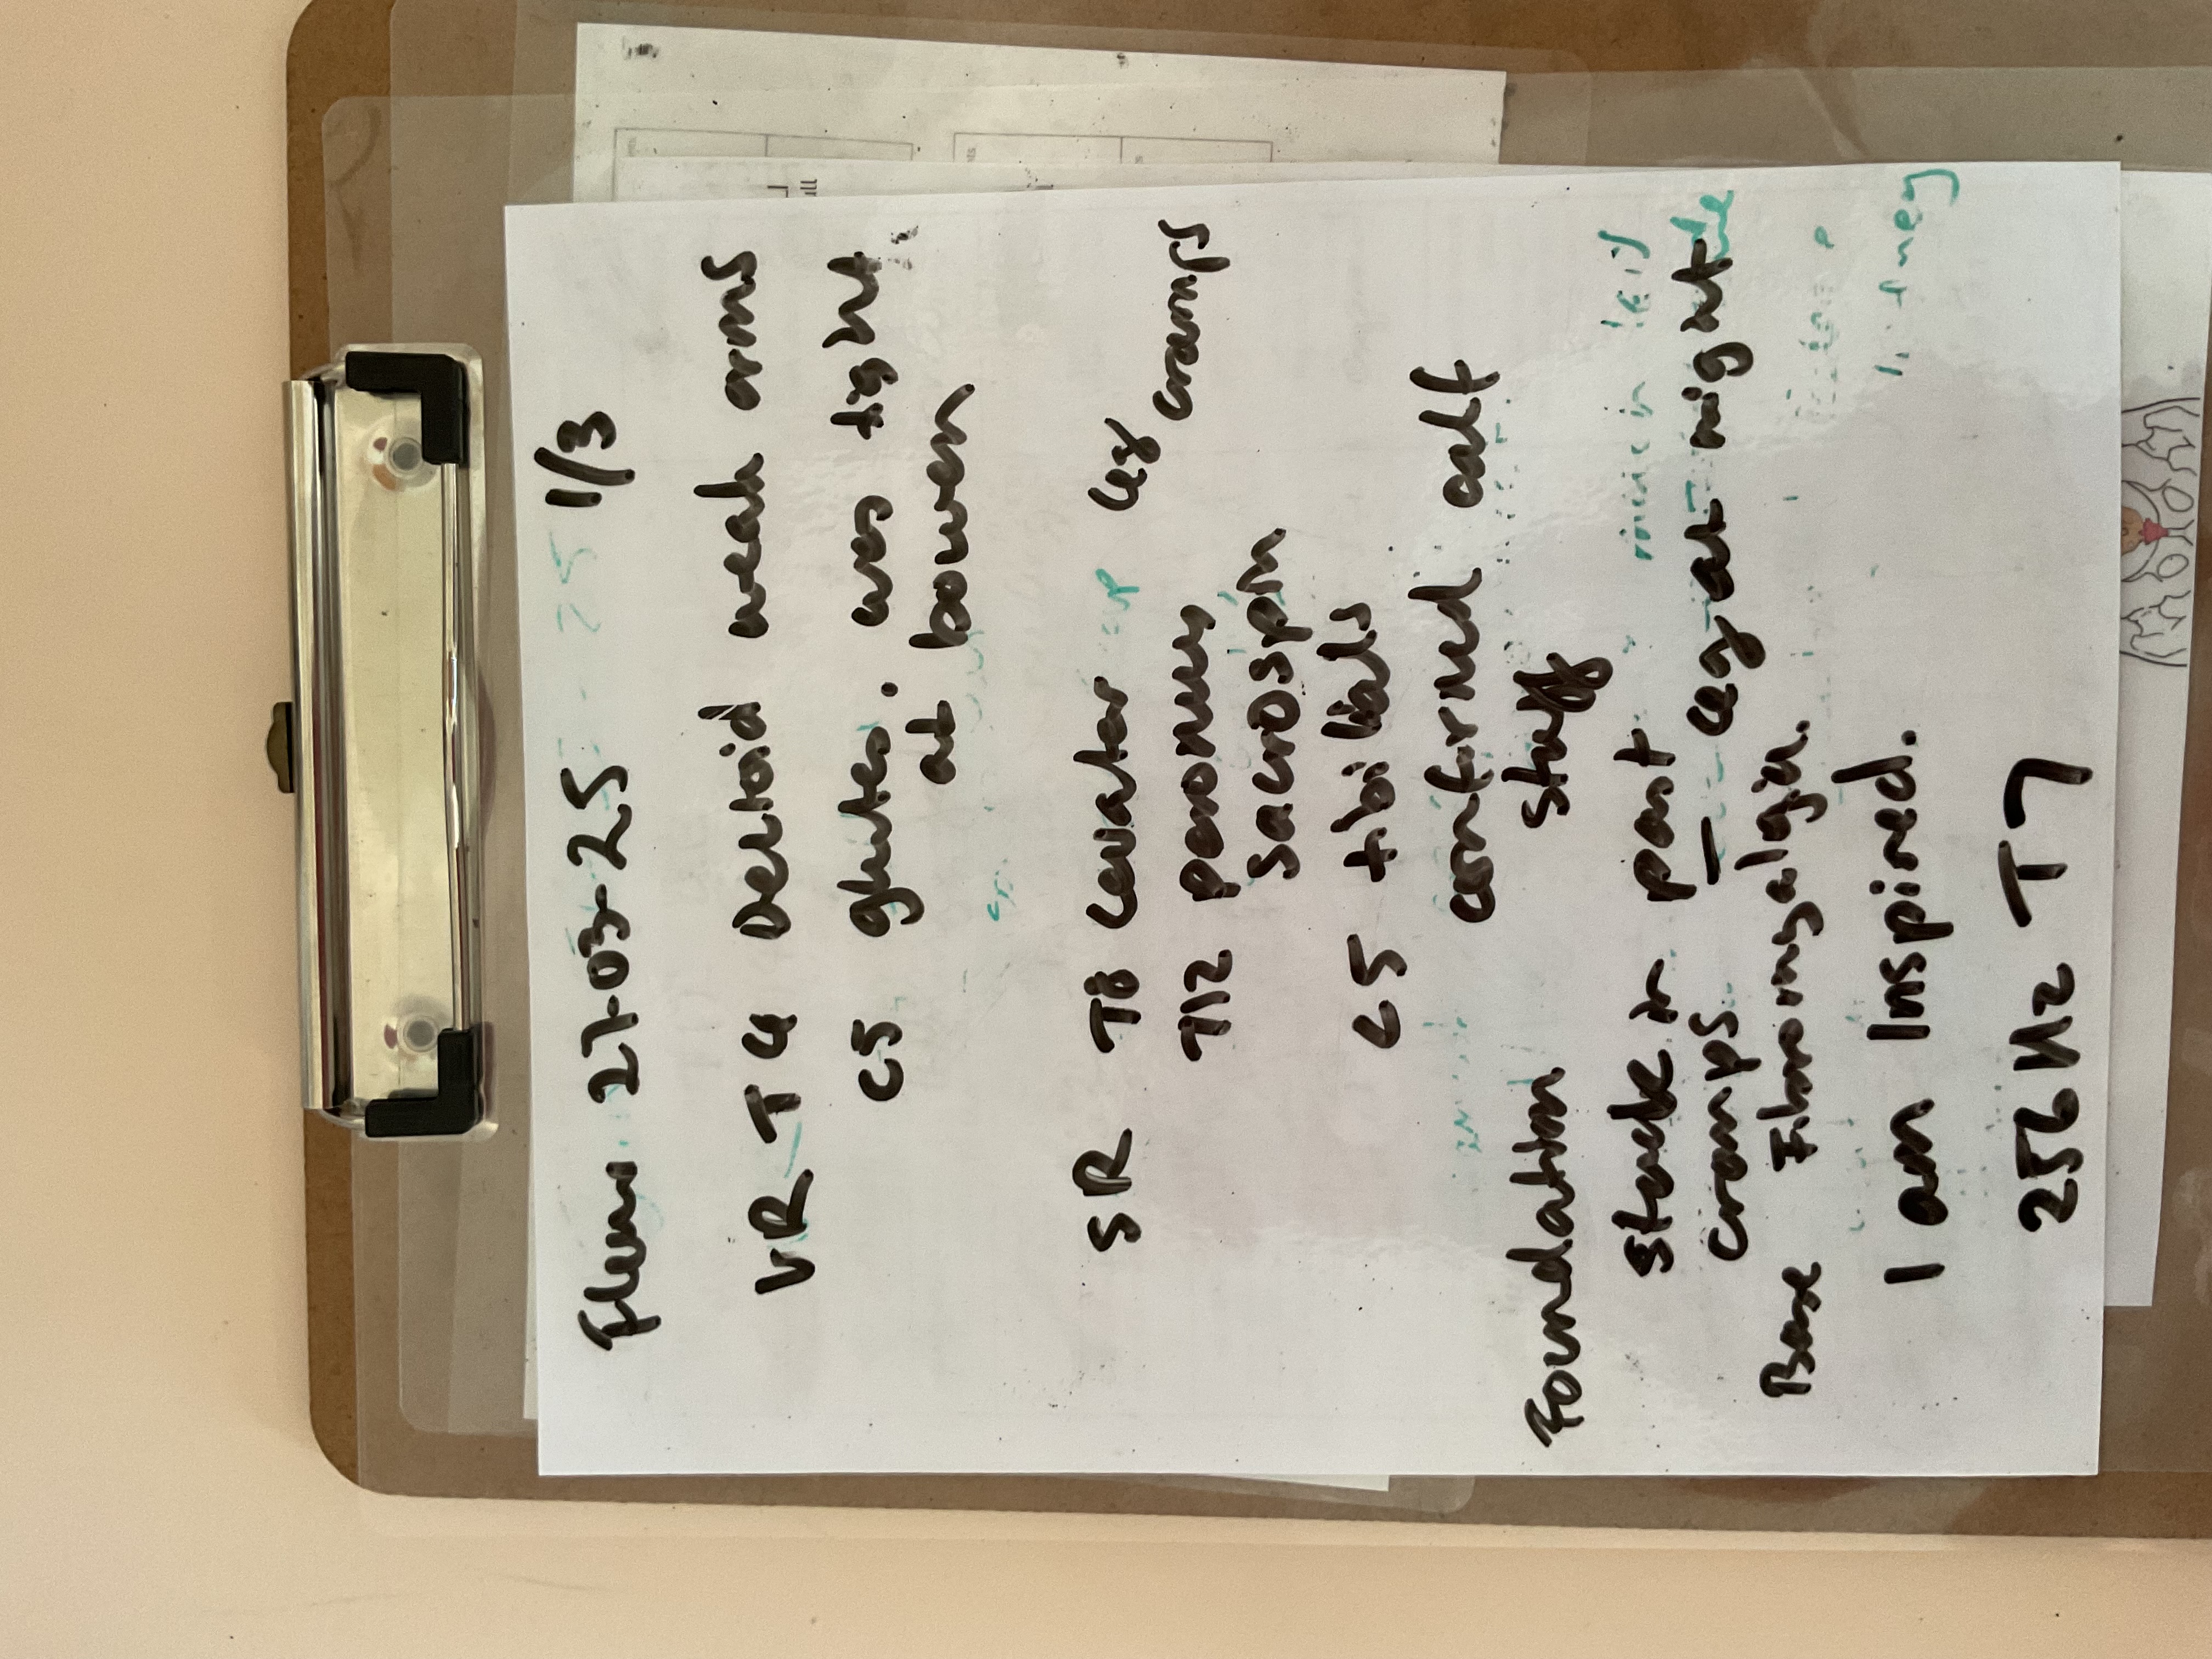 27-03-25 1/3
VR T4 Deltoid weak arms
C5 glutes. was tight
at bowen
SR T8 Levator leg cramps
T12 peroneus
sacrosph
L5 tibialis
confirned calf
stuff
Foundation
stuck in past
cramps. – leg at night
Base Fibromyalgia.
I am Inspired.
256 Hz T7